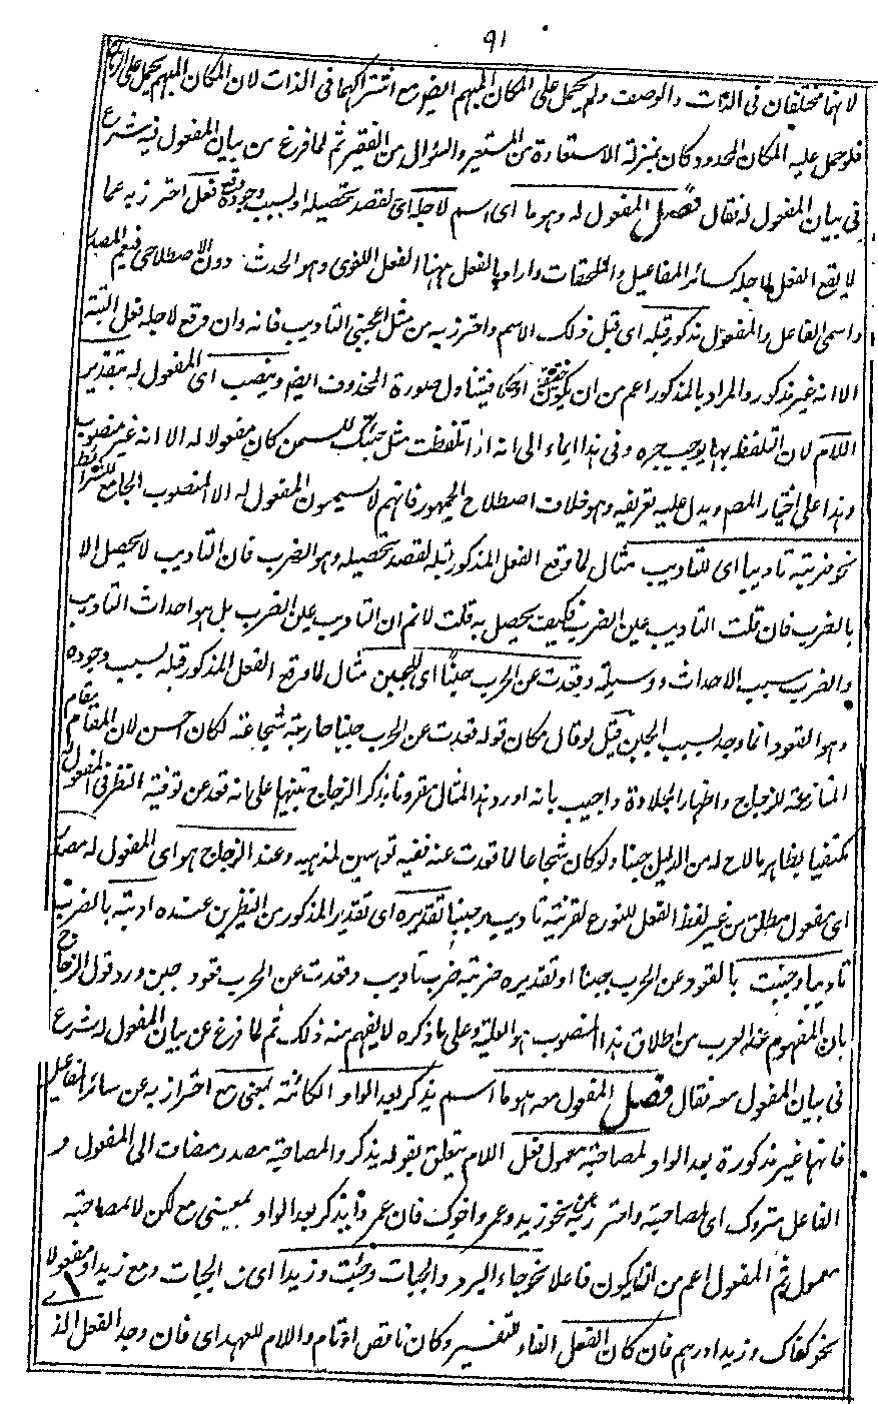 ٩١
لانهما مختلفان فى الذات والوصف ولم يحمل على المكان المبهم ايضا مع اشتراكهما فى الذات لان المكان المبهم يحمل على الزمان
فلو حمل عليه المكان المحدود كان بمنزلة الاستعارة من المستعير والسؤال من الفقير ثم لما فرغ من بيان المفعول فيه شرع
فى بيان المفعول له فقال فصل المفعول له وهو ما اى اسم لاجله اى لقصد تحصيله او لسبب وجوده وقع فعل احترز به عما
لا يقع الفعل لاجله كسائر المفاعيل والملحقات واراد بالفعل ههنا الفعل اللغوى وهو الحدث دون الاصطلاحى فيعم المصدر
واسمى الفاعل والمفعول مذكور قبله اى قبل ذلك الاسم واحترز به من مثل اعجبنى التاديب فانه وان وقع لاجله فعل البتة
الا انه غير مذكور والمراد بالمذكور اعم من ان يكون حقيقة او حكما فيتناول صورة المحذوف ايضا وينصب اى المفعول له بتقدير
اللام لان التلفظ بها يوجب جره وفى هذا ايماء الى انه اذا تلفظت مثل جئتك للسمن كان مفعولا له الا انه غير منصوب
وهذا على اختيار المصـ ويدل عليه تعريفه وهو خلاف اصطلاح الجمهور فانهم لا يسمون المفعول له الا المنصوب الجامع للشرائط
نحو ضربته تاديبا اى للتاديب مثال لما وقع الفعل المذكور قبله لقصد تحصيله وهو الضرب فان التاديب لا يحصل الا
بالضرب فان قلت التاديب عين الضرب فكيف يحصل به قلت لانم ان التاديب عين الضرب بل هو احداث التاديب
والضرب سبب الاحداث ووسيلة وقعدت عن الحرب جبنا اى للجبن مثال لما وقع الفعل المذكور قبله لسبب وجوده
وهو القعود انما وجد لسبب الجبن قيل لو قال مكان قوله قعدت عن الحرب جبنا حاربته شجاعة لكان احسن لان المقام مقام
المنازعة للزجاج واظهار الجلادة واجيب بانه اورد هذا المثال مقرونا بذكر الزجاج تنبيها على انه قعد عن توفية النظر فى المفعول له
مكتفيا بظاهر ما لاح له من الدليل جبنا ولو كان شجاعا لما قعدت عنه ففيه توهين لمذهبه وعند الزجاج هو اى المفعول له مصدر
اى مفعول مطلق من غير لفظ الفعل للنوع لقرينة تاديب وجبنا تقديره اى تقدير المذكور من النظيرين عنده ادبته بالضرب
تاديبا وجبنت بالقعود عن الحرب جبنا او تقديره ضربته ضرب تاديب وقعدت عن الحرب قعود جبن ورد قول الزجاج
بان المفهوم عند العرب من اطلاق هذا المنصوب هو العلية وعلى ما ذكره لا يفهم منه ذلك ثم لما فرغ عن بيان المفعول له شرع
فى بيان المفعول معه فقال فصل المفعول معه هو ما اسم يذكر بعد الواو الكائنة بمعنى مع احتراز به عن سائر المفاعيل
فانها غير مذكورة بعد الواو لمصاحبة معمول فعل اللام يتعلق بقوله يذكر والمصاحبة مصدر مضاف الى المفعول و
الفاعل متروك اى لمصاحبته واحترز به عن نحو زيد وعمرو اخوك فان عمروا يذكر بعد الواو بمعنى مع لكن لا لمصاحبة
معمول ثم المفعول اعم من ان يكون فاعلا نحو جاء البرد والجبات وجئت وزيدا اى مع الجبات ومع زيد او مفعولا
نحو كفاك وزيدا درهم فان كان الفعل الفاء للتفسير وكان ناقص او تام واللام للعهد اى فان وجد الفعل الذ